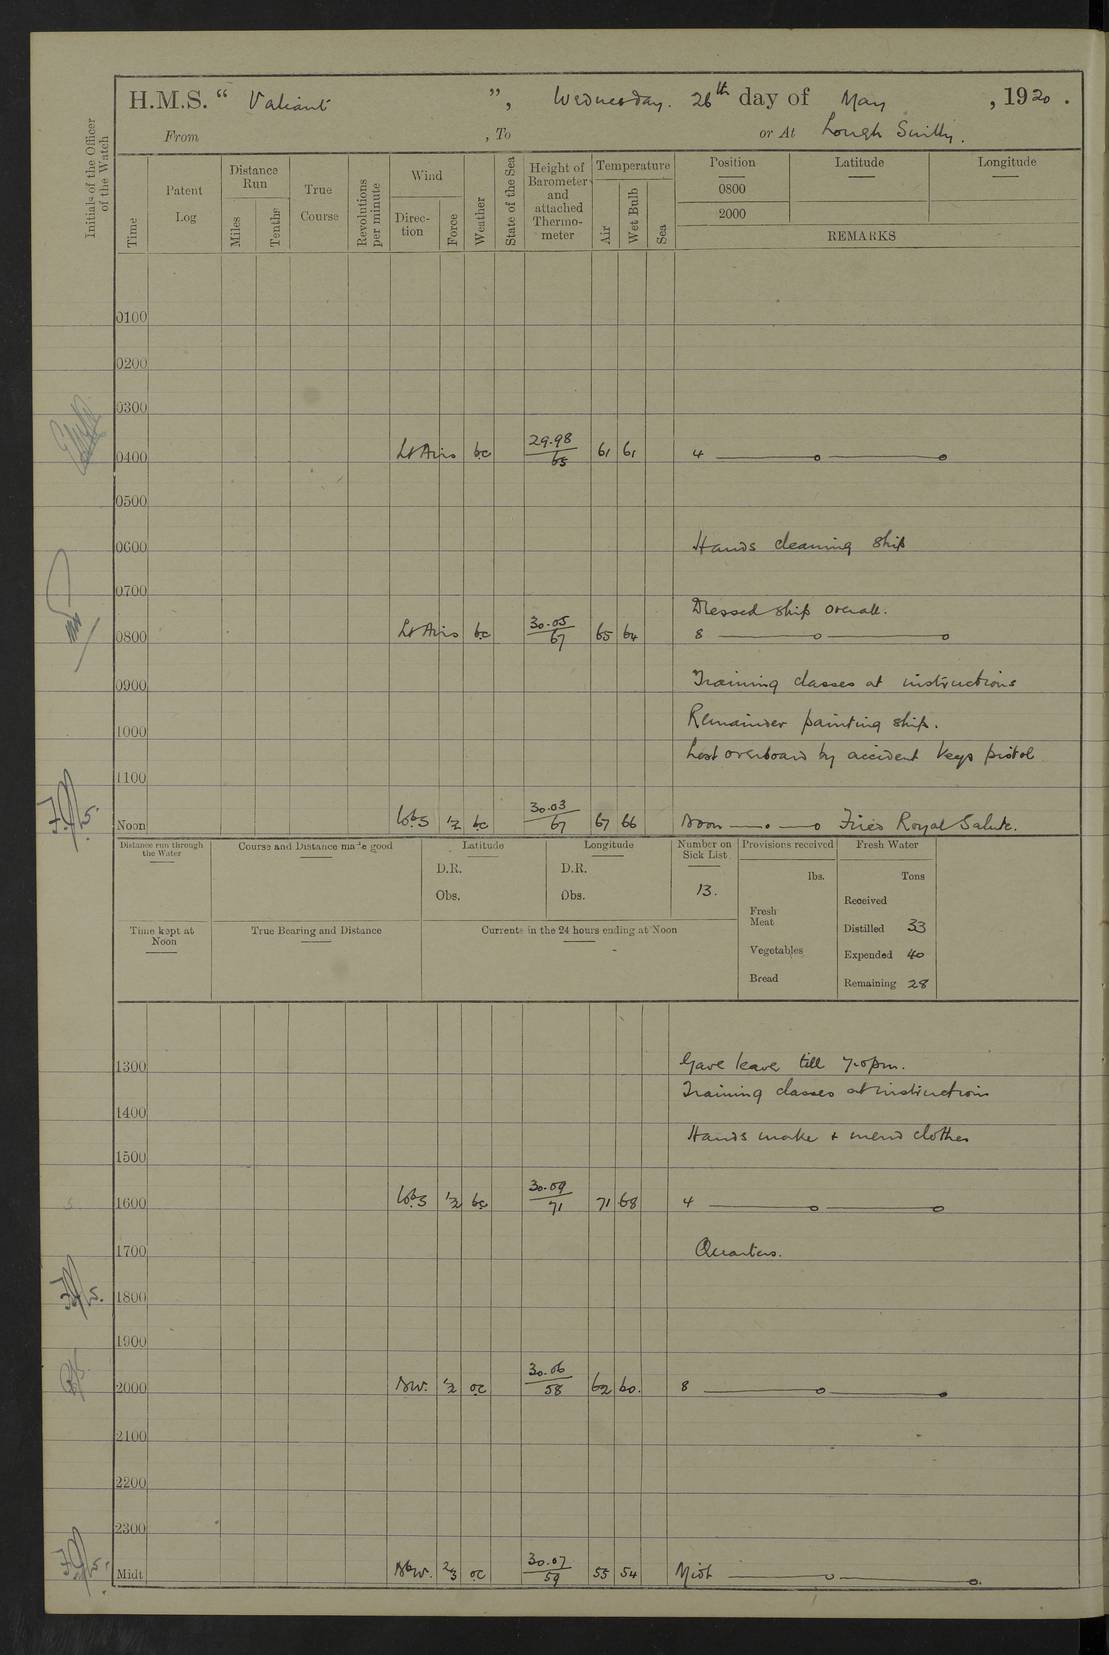 H.M.S. “ Valiant ”, Wednesday. 26th day of May , 1920 .
From , To or At Lough Swilly.
Initials of the Officer of the Watch
Time
Patent Log
Distance Run
Miles
Tenths
True Course
Revolutions per minute
Wind
Direc-tion
Force
Weather
State of the Sea
Height of Barometer and attached Thermo-meter
Temperature
Air
Wet Bulb
Sea
Position Latitude Longitude
0800
2000
REMARKS
0100
0200
0300
0400 Lt Airs bc 29.98/65 61 61 4
0500
0600 Hands cleaning ship
0700
Dressed ship overall.
0800 Lt Airs bc 30.05/67 65 64 8
0900 Training classes at instructions
Remainder painting ship.
1000
Lost overboard by accident Verys pistol
1100
Noon 1/2 bc 30.03/67 67 66 Noon Fired Royal Salute.
Distance run through the Water
Course and Distance made good
Latitude
D.R.
Obs.
Longitude
D.R.
Obs.
Number on Sick List
13.
Provisions received
lbs.
Fresh Meat
Vegetables
Bread
Fresh Water
Tons
Received
Distilled 33
Expended 40
Remaining 28
Time kept at Noon
True Bearing and Distance
Currents in the 24 hours ending at Noon
1300 Gave leave till 7.0pm.
Training classes at instruction
1400
Hands make & mend clothes
1500
1600 1/2 bc 30.09/71 71 68 4
1700 Quarters.
1800
1900
2000 NW. 1/2 oc 30.06/58 62 60. 8
2100
2200
2300
Midt NbW. 2/3 oc 30.07/59 55 54 Midt